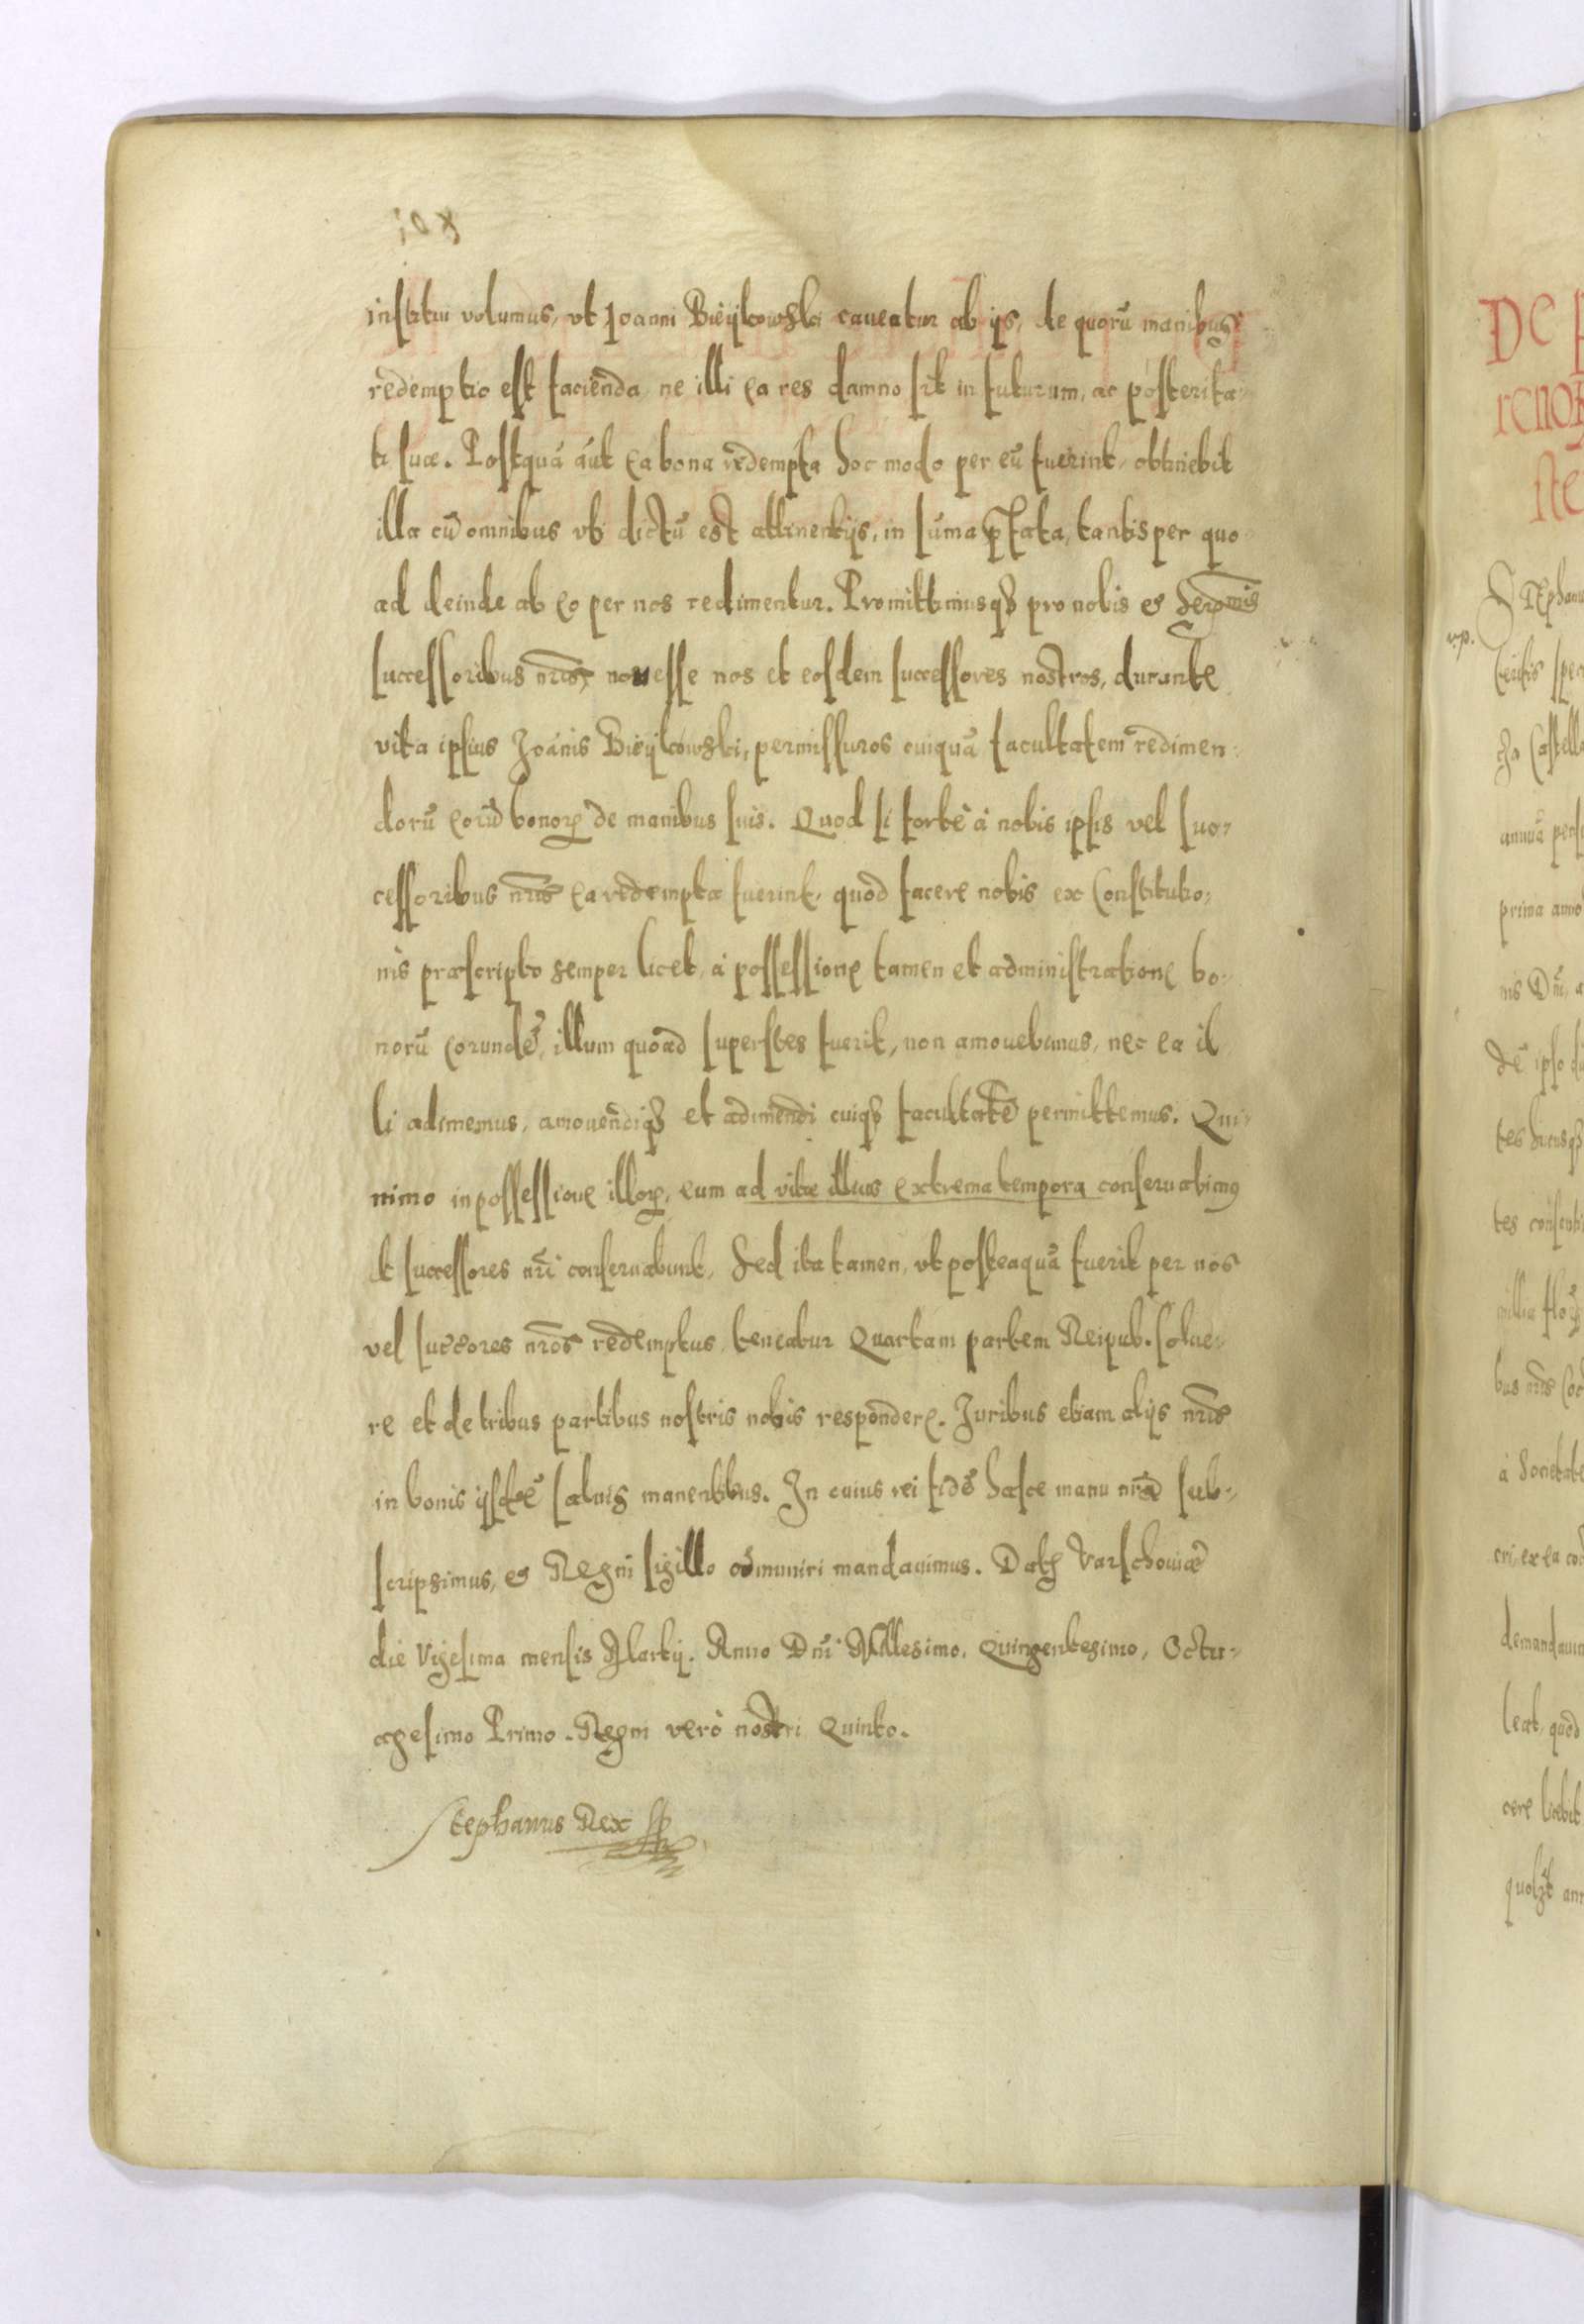 institui volumus, vt Joanni Bieijkowski caueatur ab ijs, de quorū manibus
redemptio est facienda ne illi ea res damno sit in futurum, ac posterita-
ti suæ. Postquā aūt ea bona redempta hoc modo per eū fuerint, obtinebit
illa cū omnibus vti dictū est attinentijs, in sūma p̄fata, tantisper quo
ad deinde ab eo per nos redimentur. Promittimusq3 pro nobis et Serenmis
successoribus nr̄is, non esse nos et eosdem successores nostros, durante
vita ipsius Joānis Bieijkowski, permissuros cuiquā facultatem redimen-
dorū eorū bonorꝝ de manibus suis. Quod si fortè à nobis ipsis vel suc-
cessoribus nr̄is ea redempta fuerint, quod facere nobis ex Constitutio-
nis præscripto semper licet, à possessione tamen et administratione bo-
norū eorundē, illum quoad superstes fuerit, non amouebimus, nec ea il
li adimemus, amouendiq3 et adimendi cuiq3 facultatē permittemus. Qui-
nimo in possessione illorꝝ, eum ad vitæ illius extrema tempora conseruabimꝰ
et successores nr̄i conseruabunt, Sed ita tamen, vt posteaquā fuerit per nos
vel succ̄ores nr̄os redemptus, teneatur Quartam partem Reipub. solue-
re et de tribus partibus nostris nobis respondere. Juribus etiam alijs nr̄is
in bonis ijsdē saluis manentibus. In cuius rei fidē hasce manu nr̄a sub-
scripsimus, et Regni sigillo cōmuniri mandauimus. Datꝭ Varschouiæ
die Vigesima mensis Martij. Anno Dn̄i Millesimo, Quingentesimo, Octu-
agesimo Primo. Regni verò nostri Quinto.
Stephanus Rex
De
reno
ste
Stephanu
annuā
prima anno
nis Dn̄i, a
dē ipso
tes
tes consenti
millia
bus nr̄is
à
demandauim
leat, quod
cere licebit